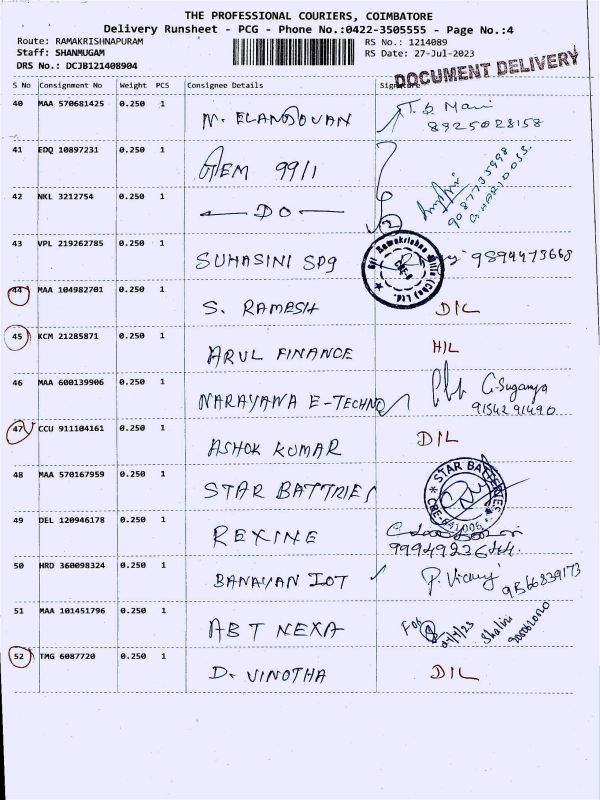 THE PROFESSIONAL COURIERS, COIMBATORE
Delivery Runsheet - PCG - Phone No.:0422-3505555 - Page No.:4
Route: RAMAKRISHNAPURAM RS No.: 1214089
Staff: SHANMUGAM RS Date: 27-Jul-2023
DRS No.: DCJB121408904
DOCUMENT DELIVERY
S No Consignment No Weight PCS Consignee Details Signature
40 MAA 570681425 0.250 1 N. ELANGOVAN T. S. Mani
8925028158
41 EDQ 10897231 0.250 1 GEM 99/1
9087735998
G. HARIDOSS.
42 NKL 3212754 0.250 1 DO
2
43 VPL 219262785 0.250 1 SUHASINI SPg 9894473668
Sri Ramakrishna Mills (Cbe) Ltd.
44 MAA 104982701 0.250 1 S. RAMESH DIL
45 KCM 21285871 0.250 1 ARUL FINANCE HIL
46 MAA 600139906 0.250 1 NARAYANA E-TECHNO G. Suganya
9154291490
47 CCU 911104161 0.250 1 ASHOK KUMAR DIL
48 MAA 570167959 0.250 1 STAR BATTRIES
STAR BATTERIES
CBE-641 006
49 DEL 120946178 0.250 1 REXINE
50 HRD 360098324 0.250 1 BANAYAN IOT P. Vicky
9866839173
51 MAA 101451796 0.250 1 ABT NEXA For Shalini
52 TMG 6087720 0.250 1 D. VINOTHA DIL